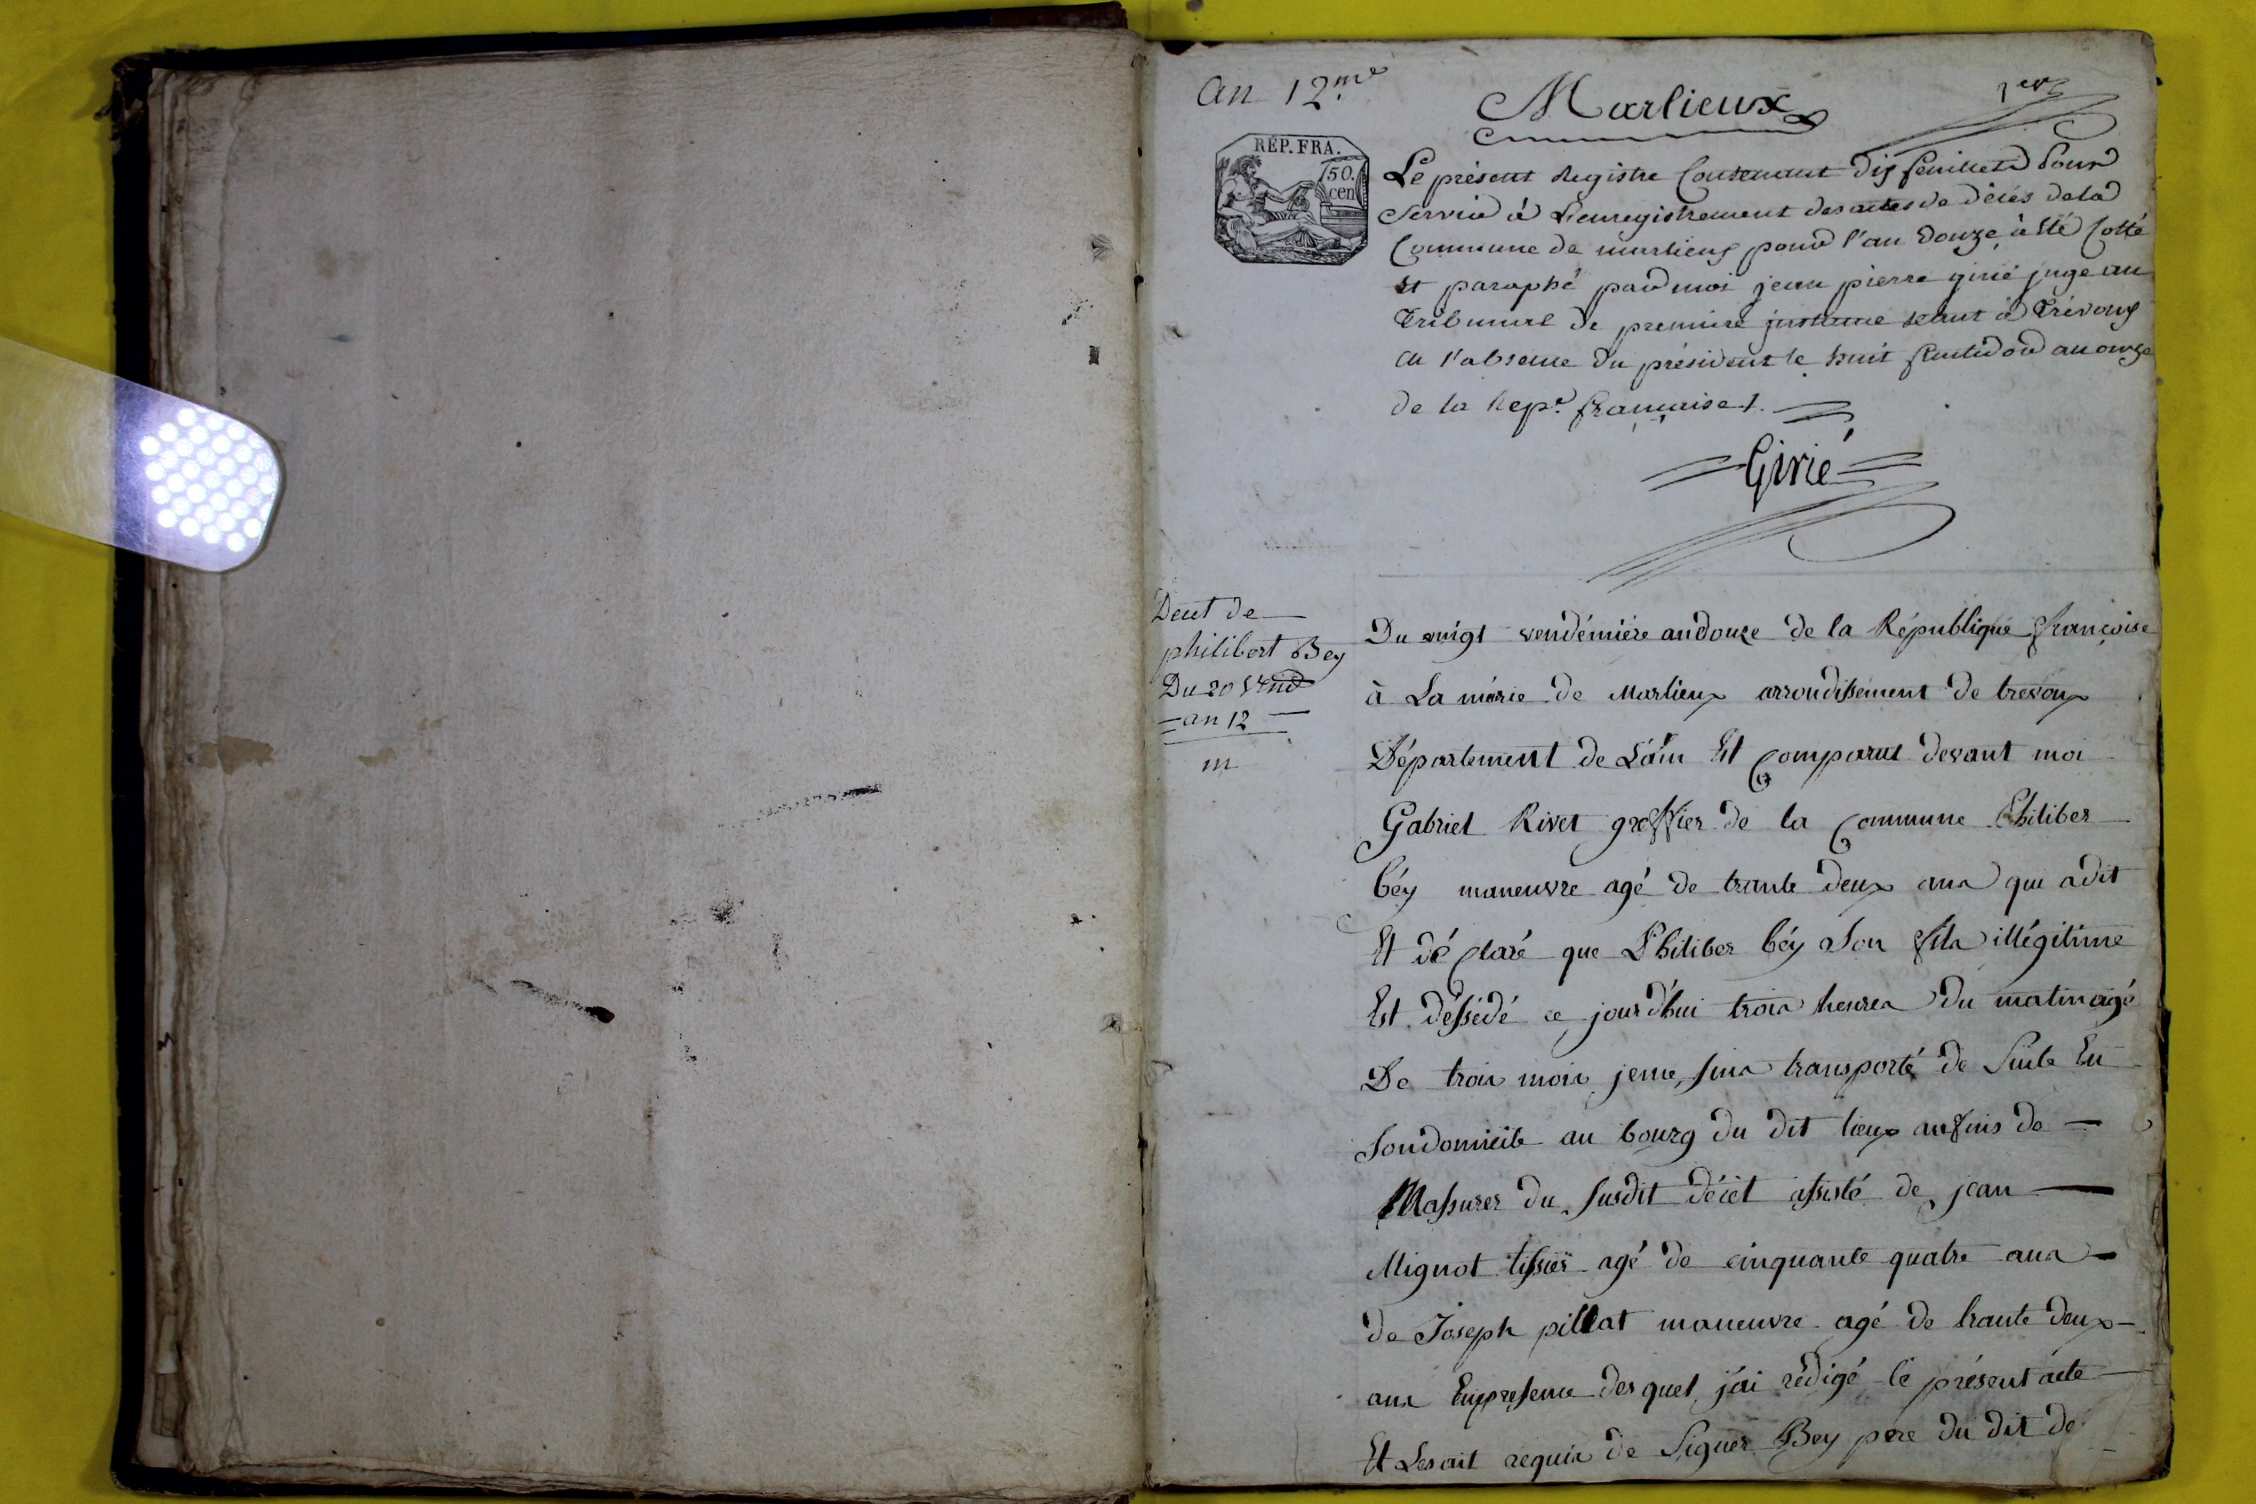 An 12.me
Marlieux
1er
RÉP. FRA.
50.
cen
Le présent Registre Contenant dix feuillets Pour
Servir à L'enregistrement des actes de décés de la
Commune de marlieux pour l'an douze, à été Cotté
et paraphé par moi jean pierre girié juge au
Tribunal de premiere instance séant à Trévoux
en l'absence du président le huit fructidor an onze
de la Rep.e française /.
Girié
Deut de
philibert Bey
Du 20 Vend
an 12
m
Du vingt vendémiére an douze de la République françoise
à La mérie de Marlieux arrondissement de trevoux
Département de L'ain Et Comparut devant moi
Gabriel Rivet greffier de la Commune Philiber
béy maneuvre agé de trante deux ans qui a dit
Et dé Claré que Philiber béy a Son fils illégitime
Est déssédé ce jourd'hui trois heures du matin agé
De trois mois je me suis transporté de Suite En
Son domicile au bourg du dit lieux au fins de
Massurer du Susdit décét assisté de jean
Mignot tissier agé de cinquante quatre ans
de Joseph pillat maneuvre agé de trante deux
ans En presence des quel j'ai rédigé le présent acte
Et Les ait requis de Signer Bey pere du dit de